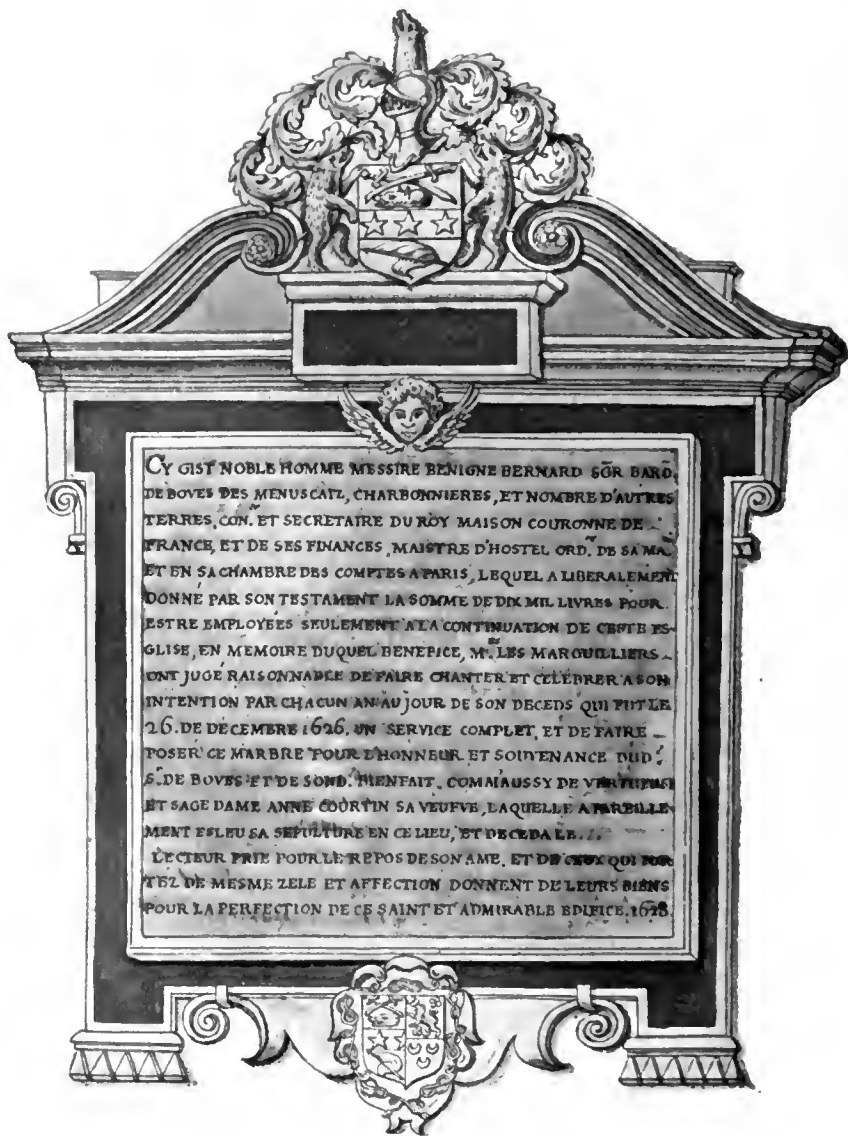 CY GIST NOBLE HOMME MESSIRE BENIGNE BERNARD SGR BARŌ
DE BOVES DES MENUSCATZ, CHARBONNIERES, ET NOMBRE D'AUTRES
TERRES, CON. ET SECRETAIRE DU ROY MAISON COURONNE DE
FRANCE, ET DE SES FINANCES, MAISTRE D'HOSTEL ORD. DE SA MA.
ET EN SA CHAMBRE DES COMPTES A PARIS, LEQUEL A LIBERALEMENT
DONNÉ PAR SON TESTAMENT LA SOMME DE DIX MIL LIVRES POUR
ESTRE EMPLOYEES SEULEMENT A LA CONTINUATION DE CESTE ES-
GLISE, EN MEMOIRE DUQUEL BENEFICE, Mrs. LES MARGUILLIERS
ONT JUGÉ RAISONNABLE DE FAIRE CHANTER ET CELEBRER A SON
INTENTION PAR CHACUN AN AU JOUR DE SON DECEDS QUI FUT LE
26. DE DECEMBRE 1626. UN SERVICE COMPLET, ET DE FAIRE
POSER CE MARBRE POUR L'HONNEUR ET SOUVENANCE DUD.
S. DE BOVES ET DE SOND. BIENFAIT, COM'AUSSY DE VERTUEUSE
ET SAGE DAME ANNE COURTIN SA VEUFVE, LAQUELLE A PAREILLE-
MENT ESLEU SA SEPULTURE EN CE LIEU, ET DECEDA LE ...
LECTEUR PRIE POUR LE REPOS DE SON AME, ET DE CEUX QUI POR-
TEZ DE MESME ZELE ET AFFECTION DONNENT DE LEURS BIENS
POUR LA PERFECTION DE CE SAINT ET ADMIRABLE EDIFICE. 1628.